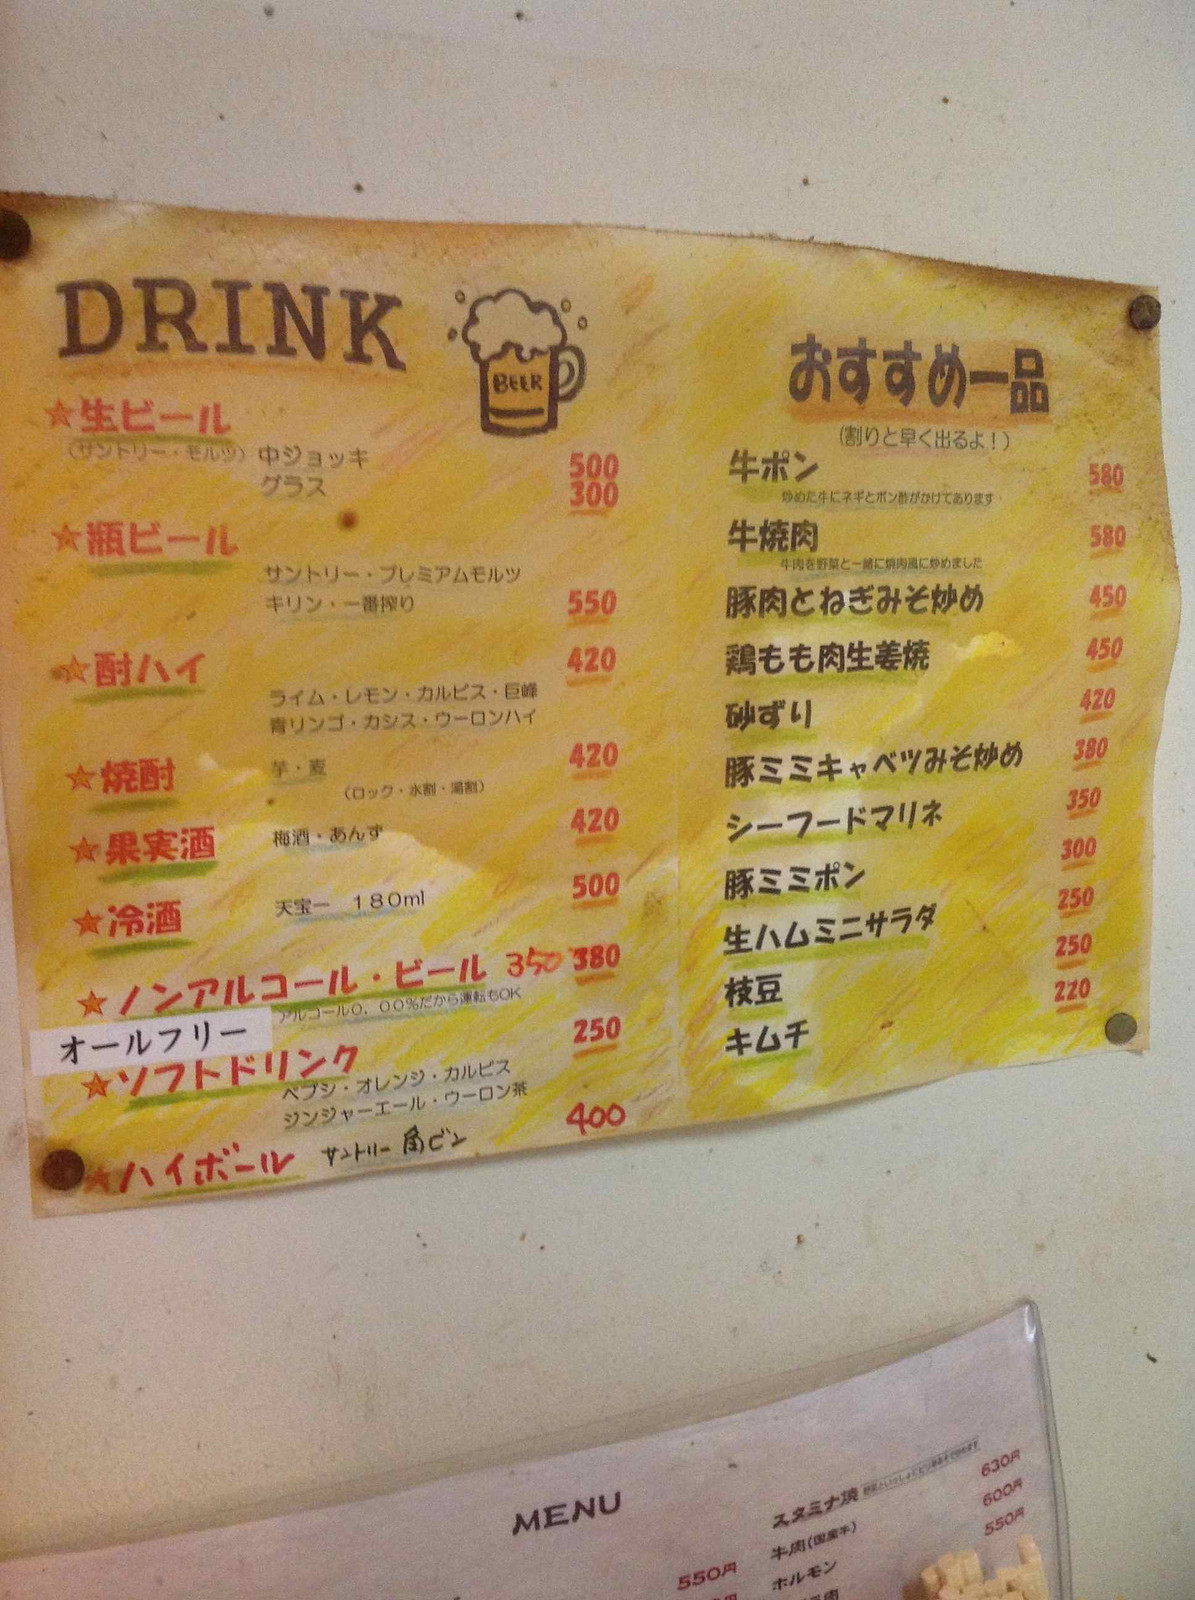 DRINK
BEER
★生ビール
(サントリー・モルツ) 中ジョッキ 500
グラス 300
★瓶ビール
サントリー・プレミアムモルツ
キリン・一番搾り 550
★酎ハイ 420
ライム・レモン・カルピス・巨峰
青リンゴ・カシス・ウーロンハイ
★焼酎 芋・麦 420
(ロック・水割・湯割)
★果実酒 梅酒・あんず 420
★冷酒 天宝一 180ml 500
★ノンアルコール・ビール 350 380
アルコール0.00%だから運転もOK
オールフリー
★ソフトドリンク 250
ペプシ・オレンジ・カルピス
ジンジャーエール・ウーロン茶
★ハイボール サントリー 角ビン 400
おすすめ一品
(割りと早く出るよ!)
牛ポン 580
炒めた牛にネギとポン酢がかけてあります
牛焼肉 580
牛肉を野菜と一緒に焼肉風に炒めました
豚肉とねぎみそ炒め 450
鶏もも肉生姜焼 450
砂ずり 420
豚ミミキャベツみそ炒め 380
シーフードマリネ 350
豚ミミポン 300
生ハムミニサラダ 250
枝豆 250
キムチ 220
MENU
550円
スタミナ焼 630円
牛肉(国産牛) 600円
ホルモン 550円